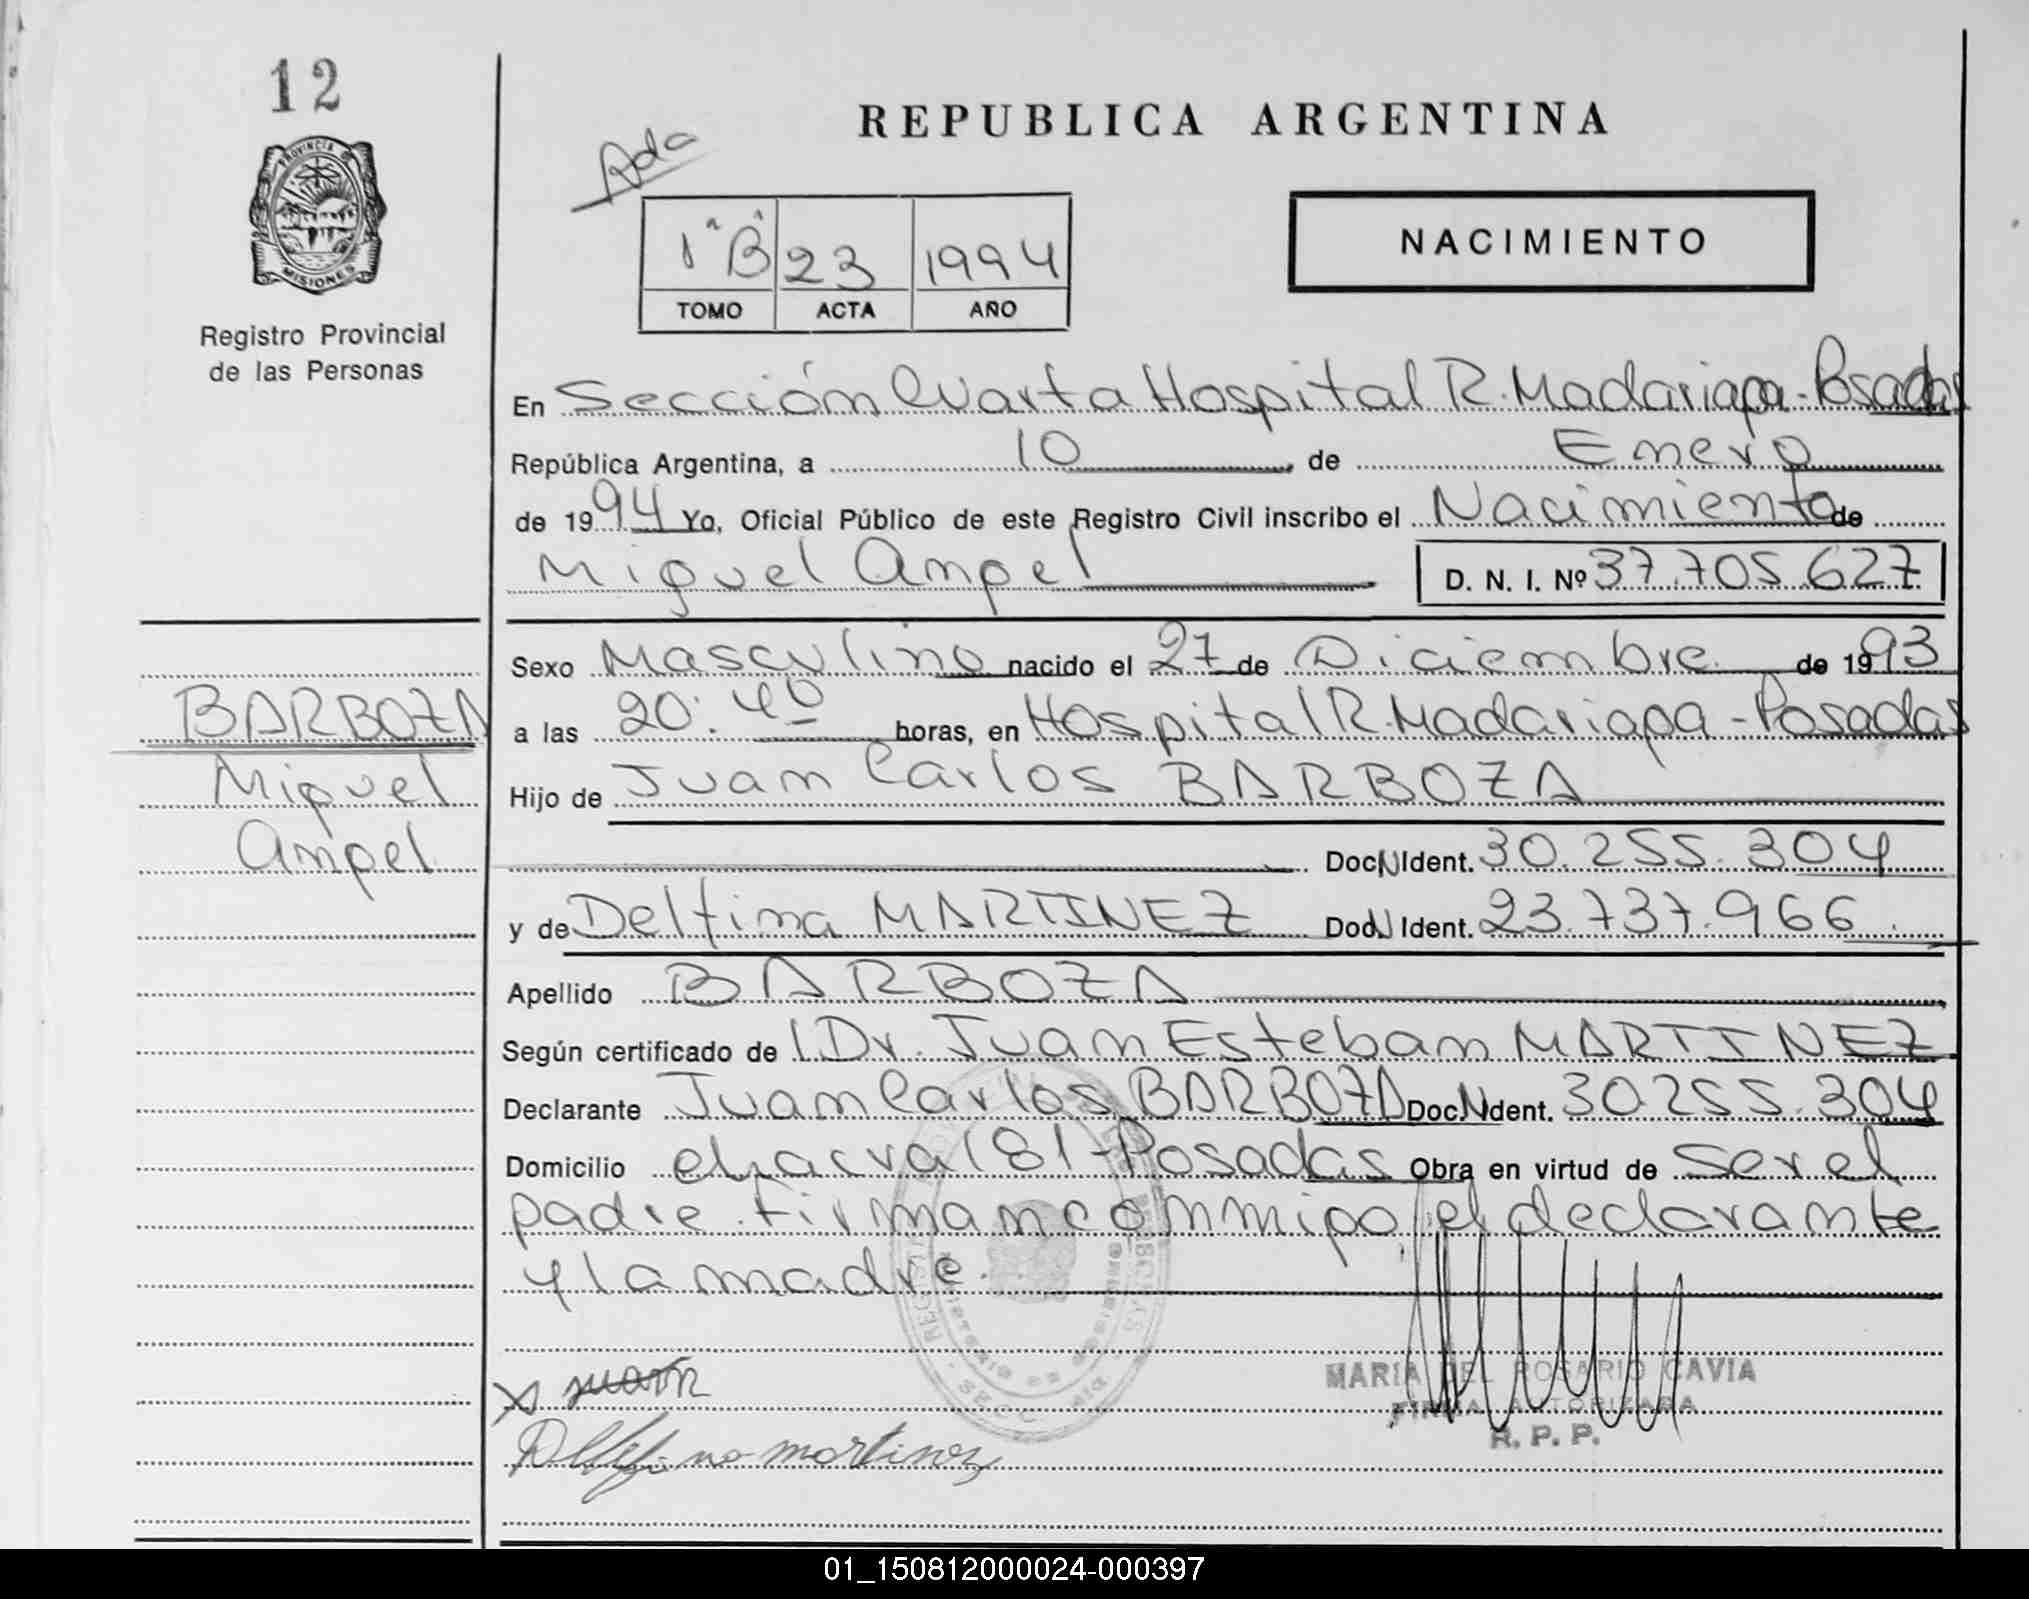 12
PROVINCIA DE
MISIONES
Registro Provincial
de las Personas
Ada
REPUBLICA ARGENTINA
1º "B" 23 1994
TOMO ACTA AÑO
NACIMIENTO
En Sección Cuarta Hospital R. Madariaga - Posadas
República Argentina, a 10 de Enero
de 1994 Yo, Oficial Público de este Registro Civil inscribo el Nacimiento de
Miguel Angel D. N. I. Nº 37.705.627
Sexo Masculino nacido el 27 de Diciembre de 1993
a las 20:40 horas, en Hospital R. Madariaga - Posadas
Hijo de Juan Carlos BARBOZA
Doc N Ident. 30.255.304
y de Delfina MARTINEZ Doc N Ident. 23.737.966
Apellido BARBOZA
Según certificado de l Dr. Juan Esteban MARTINEZ
Declarante Juan Carlos BARBOZA Doc N Ident. 30.255.304
Domicilio chacra 181 - Posadas Obra en virtud de ser el
padre. firman conmigo, el declarante
y la madre.
BARBOZA
Miguel
Angel
X Juan
MARIA DEL ROSARIO CAVIA
FIRMA AUTORIZADA
R. P. P.
Dellfina martinez
01_150812000024-000397